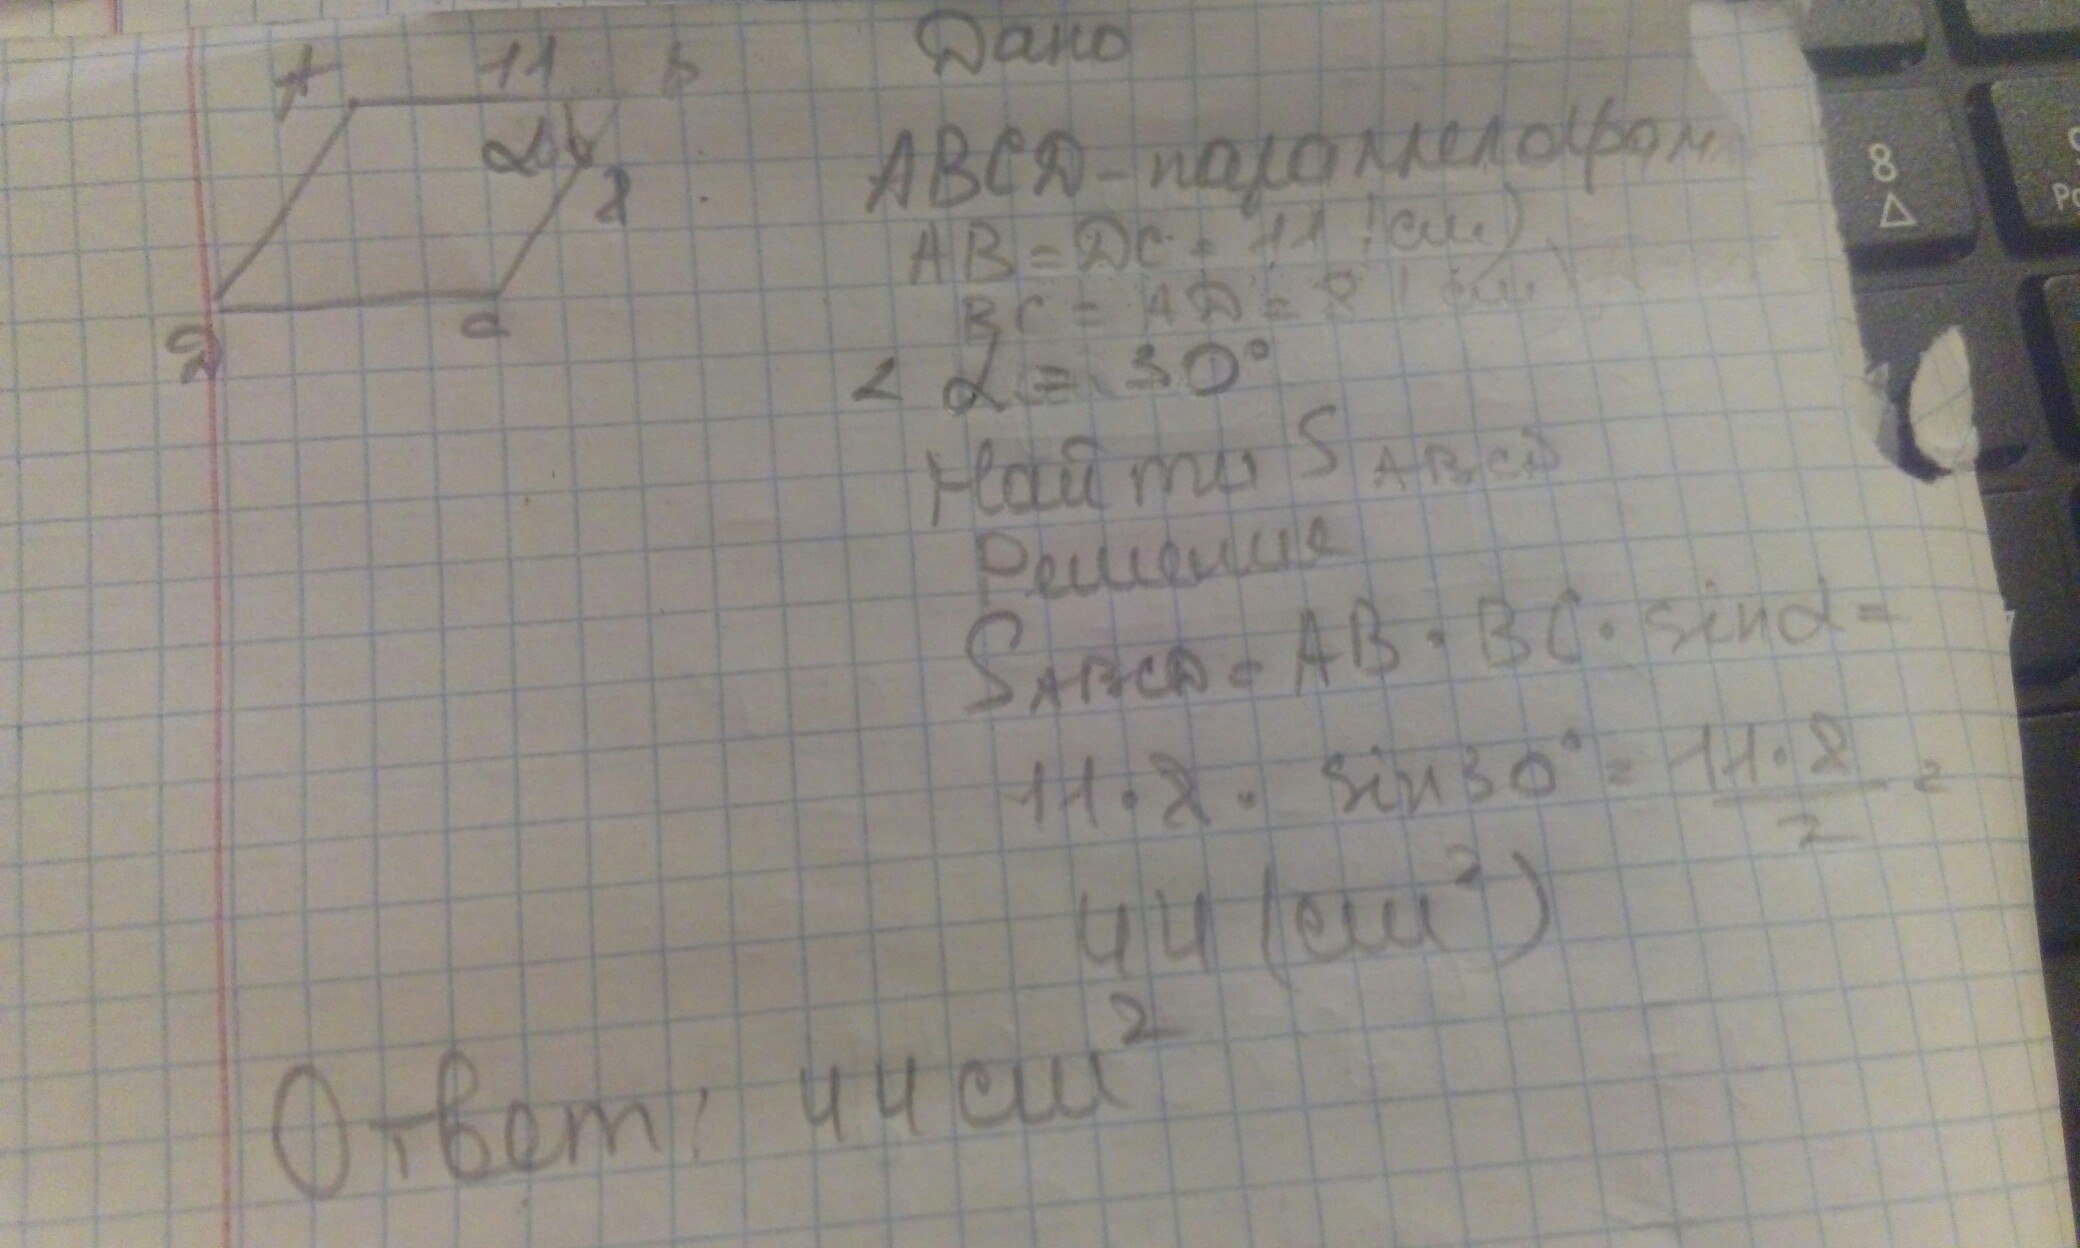 A 11 B
α
8
D C
Дано
ABCD - параллелограм
AB = DC = 11 (см)
BC = AD = 8 (см)
∠ α = 30°
Найти S ABCD
Решение
S ABCD = AB · BC · sin α =
11 · 8 · sin 30° = 11 · 8 / 2 =
44 (см²)
Ответ: 44 см²
8